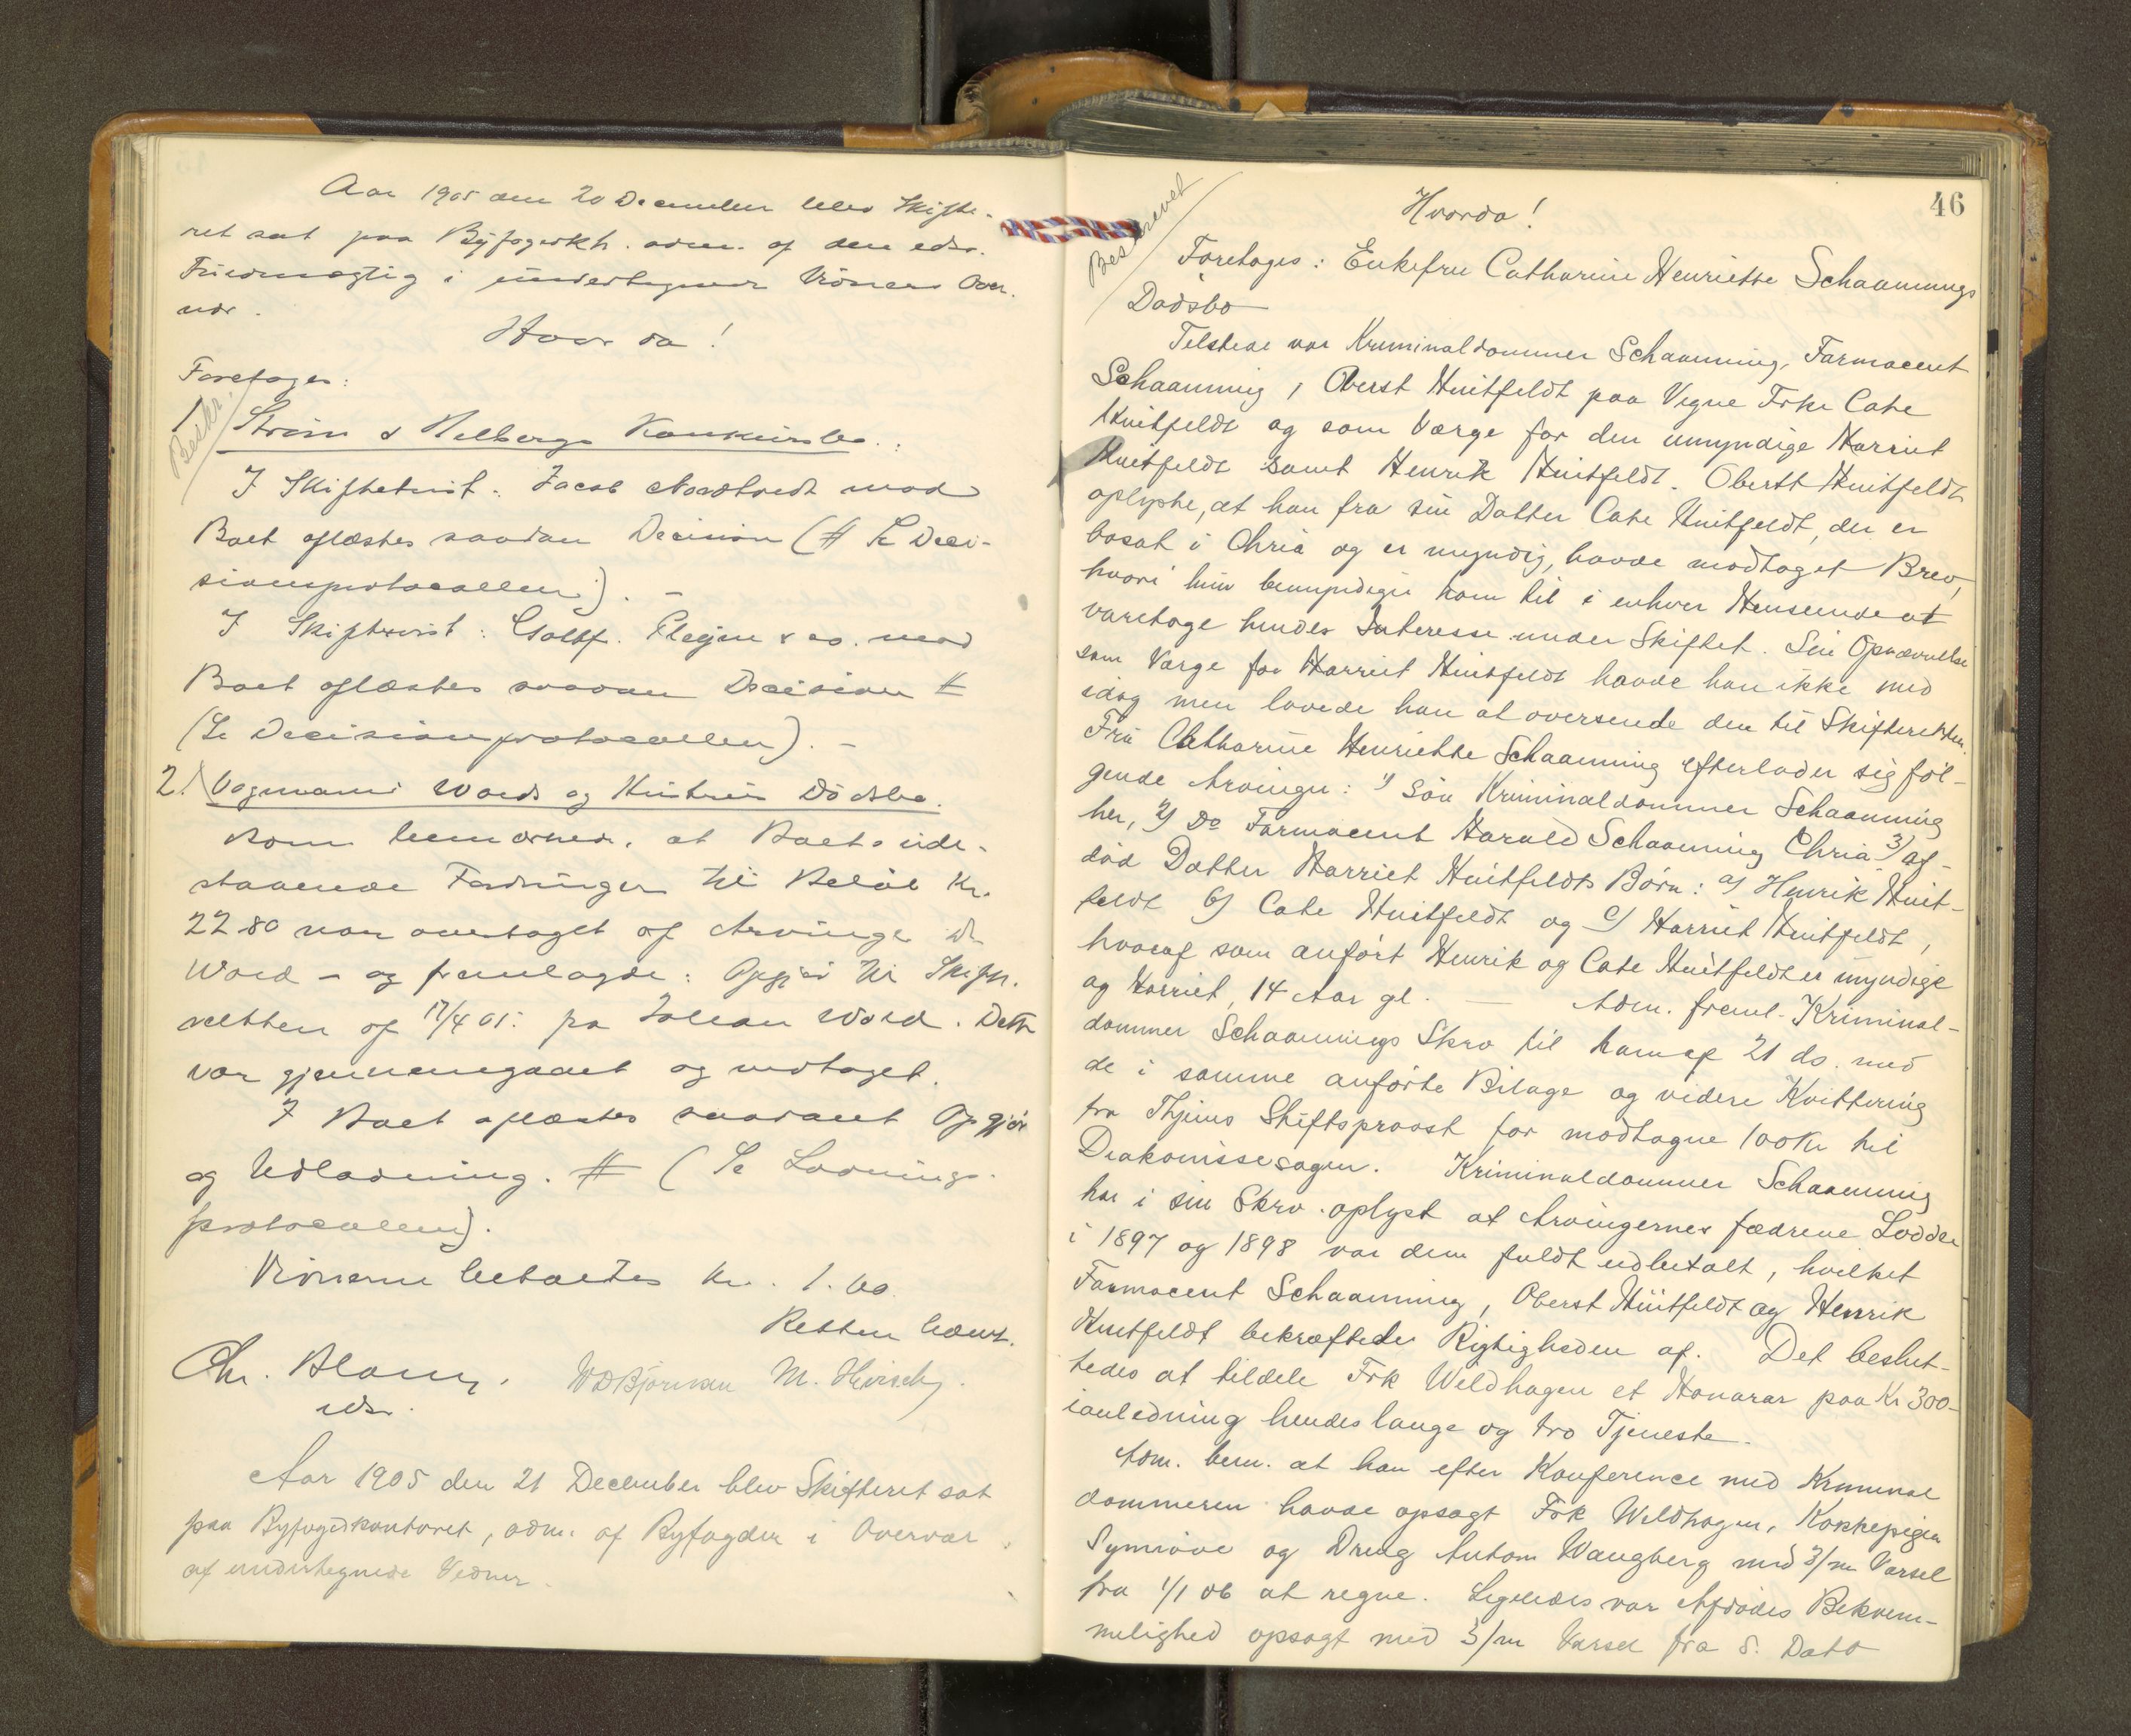 Aar 1905 den 20 December blev Skifte-
ret sat paa Byfogedkt. adm. af den edsv.
Fuldmægtig i undertegnede Vidners Over-
vær.
Hvor da!
Foretages:
Beskr.
1 Strøm & Helbergs Konkursbo.:
I Skiftetvist: Jacob Nordtvedt mod
Boet oplæstes saadan Decision (# Se Deci-
sionsprotocollen). -
I Skiftetvist: Gottf. Plejen & co. mod
Boet oplæstes saadan Decision #
(Se Decisionsprotocollen). -
2. Vognmand Wolds og Hustrus Dødsbo.
som bemærkede, at Boets ude-
staaende Fordringer til Beløb Kr.
22.80 var overtaget af Arvinge
Wold - og fremlagde: Opgjør til Skifte-
retten af 17/4 05: fra Johan Wold. Dette
var gjennemgaaet og vedtaget.
I Boet oplæstes saadant Opgjør
og Udlodning. # (Se Lodnings-
protocollen).
Vidnerne betaltes Kr. 1.60
Retten hævet.
Chr. Blom, WDBjörnsen M. Hirsch.
edsv.
Aar 1905 den 21 December blev Skifteret sat
paa Byfogedkontoret, adm. af Byfogden i Overvær
af undertegnede Vidner.
46
Beskrevet
Hvorda!
Foretoges: Enkefru Catharine Henriette Schaannings
Dødsbo
Tilstede var Kriminaldommer Schaanning, Farmaceut
Schaanning, Oberst Huitfeldt paa Vegne Frk. Cate
Huitfeldt og som Værge for den umyndige Harriet
Huitfeldt samt Henrik Huitfeldt. Oberst Huitfeldt
oplyste, at han fra sin Datter Cate Huitfeldt, der er
bosat i Chria og er myndig, havde modtaget Brev,
hvori hun bemyndiger ham til i enhver Henseende at
varetage hendes Interesse under Skiftet. Sin Opnævnelse
som Værge for Harriet Huitfeldt havde han ikke med
idag men lovede han at oversende den til Skifteretten.
Fru Chatharine Henriette Schaanning efterlader sig føl-
gende Arvinger: 1) Søn Kriminaldommer Schaanning
her, 2) Do Farmaceut Harald Schaanning Chria 3) af-
død Datter Harriet Huitfeldts Børn: a) Henrik Huit-
feldt b) Cate Huitfeldt og c) Harriet Huitfeldt,
hvoraf som anført Henrik og Cate Huitfeldt er myndige
og Harriet, 14 Aar gl. — Adm. freml. Kriminal-
dommer Schaannings Skrv til ham af 21 ds. med
de i samme anførte Bilage og videre Kvittering
fra Thjems Stiftsprovst for modtagne 100 Kr til
Diakonissesagen. Kriminaldommer Schaanning
har i sin Skrv. oplyst at Arvingernes fædrene Lodder
i 1897 og 1898 var dem fuldt udbetalt, hvilket
Farmaceut Schaanning, Oberst Huitfeldt og Henrik
Huitfeldt bekræftede Rigtigheden af. Det beslut-
tedes at tildele Frk Weldhagen et Honorar paa Kr 300-
ianledning hendes lange og tro Tjeneste.
Adm. bem. at han efter Konference med Kriminal
dommeren havde opsagt Frk Weldhagen, Kokkepigen
Synnøve og Dreng Anton Wangberg med 3/m Varsel
fra 1/1 06 at regne. Ligeledes var Afdødes Bekvem-
melighed opsagt med 3/m Varsel fra S. Dato